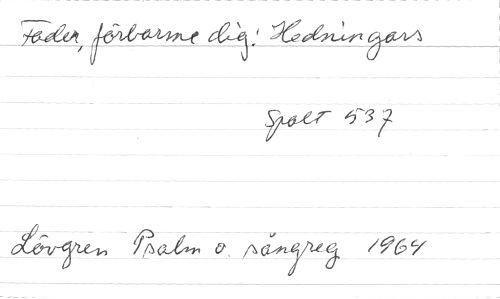 Fader, förbarme dig! Hedningars
Spalt 537
Lövgren Psalm o. sångreg 1964